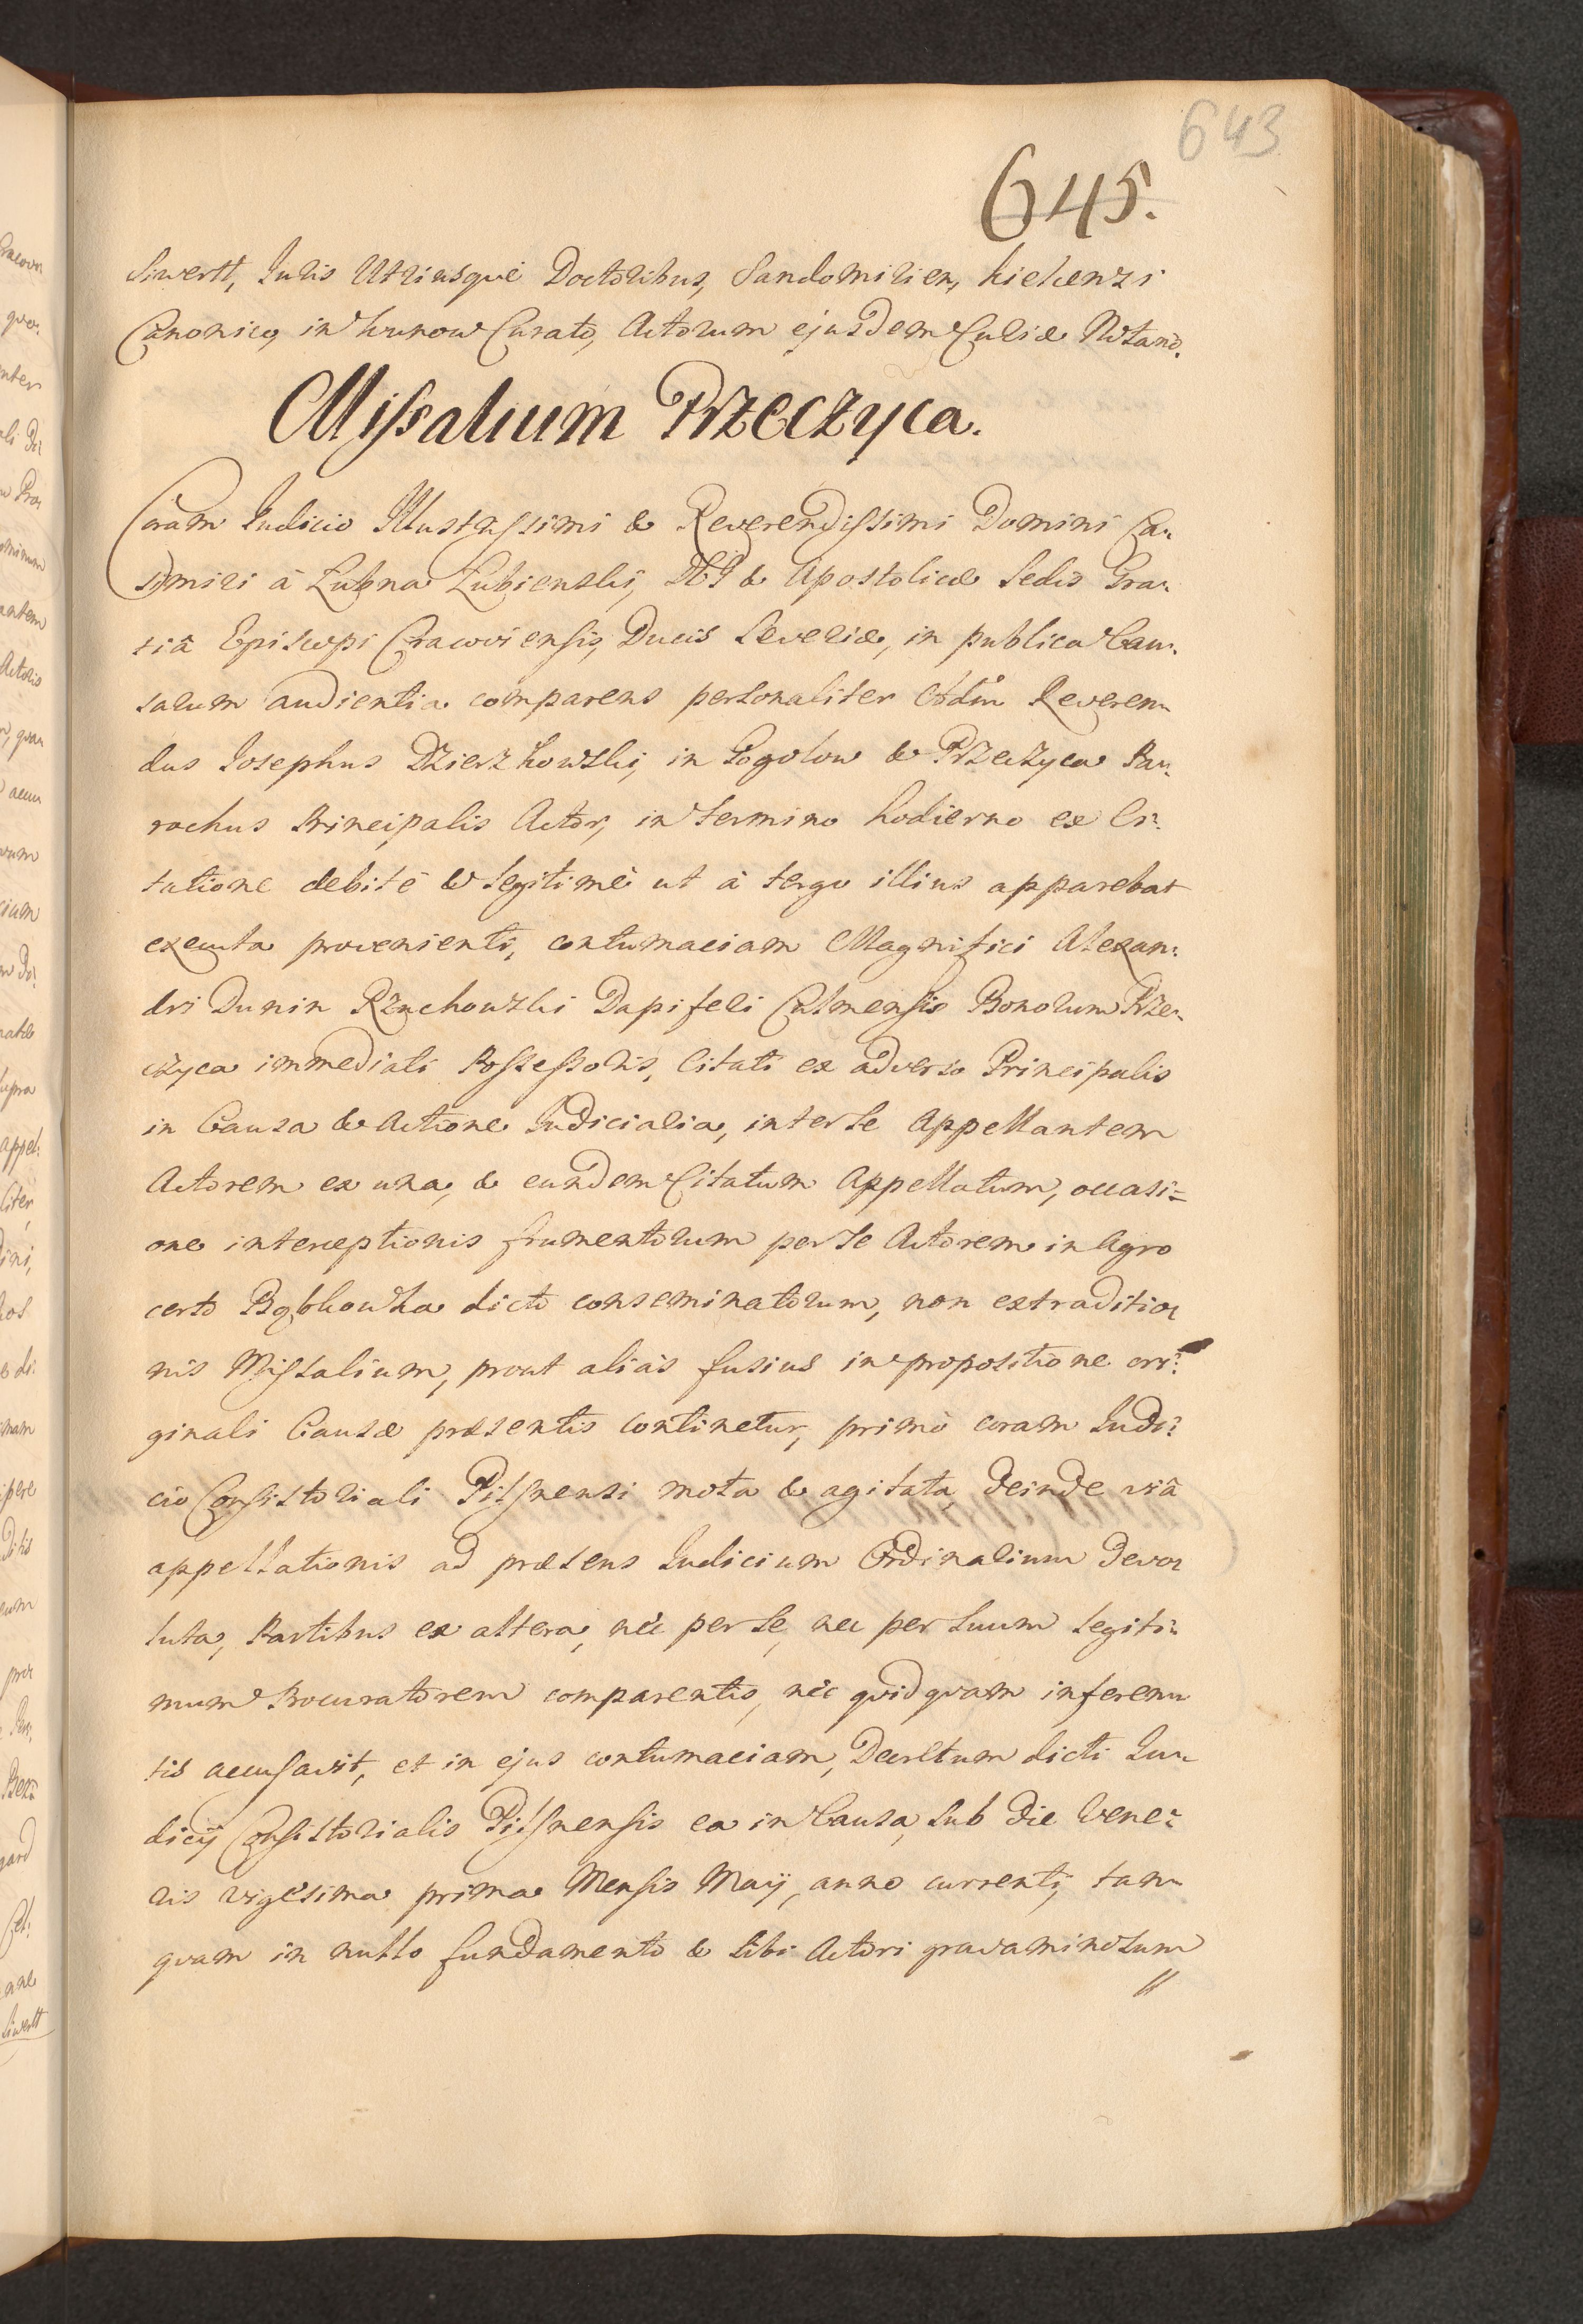 643
645.
Siwertt, Juris Utriusque Doctoribus, Sandomirien, Kielcensi
Canonico, in Curato, Actorum ejusdem Curiæ Notario.
Missalium Przeczyca.
Coram Judicio Illustrissimi & Reverendissimi Domini Ca-
simiri à Łubna Łubienski, DEI & Apostolicæ Sedis Gra-
tiâ Episcopi Cracoviensis, Ducis Severiæ, in publica Cau-
sarum audientia comparens personaliter Adm Reveren-
dus Josephus Dzierzkowski, in Gogolow & Przeczyca Pa-
rochus Principalis Actor, in termino hodierno ex Ci-
tatione debitè & legitimè ut à tergo illius apparebat
executa provenienti, contumaciam Magnifici Alexan-
dri Dunin Rzuchowski Dapiferi Culmensis Bonorum Prze-
czyca immediati Possessoris, Citati ex adverso Principalis
in Causa & Actione Judiciaria, inter se Appellantem
Actorem ex una, & eundem Citatum Appellatum, occasi=
one interceptionis frumentorum per se Actorem in Agro
certo dicto conseminatorum, non extraditio-
nis Missalium, prout aliàs fusius in propositione ori-
ginali Causæ præsentis continetur, primò coram Judi-
cio Consistoriali Pilsnensi mota & agitata, deinde viâ
appellationis ad præsens Judicium Ordinarium devo-
luta, Partibus ex altera, nec per se, nec per suum legiti-
mum Procuratorem comparentis, nec quidquam inferen-
tis accusavit, et in ejus contumaciam, Decretum dicti Ju-
dicij Consistorialis Pilsnensis ea in Causa, sub die Vene-
ris vigesima prima Mensis Maij, anno currenti, tam-
quam in nullo fundamento & sibi Actori gravaminosum